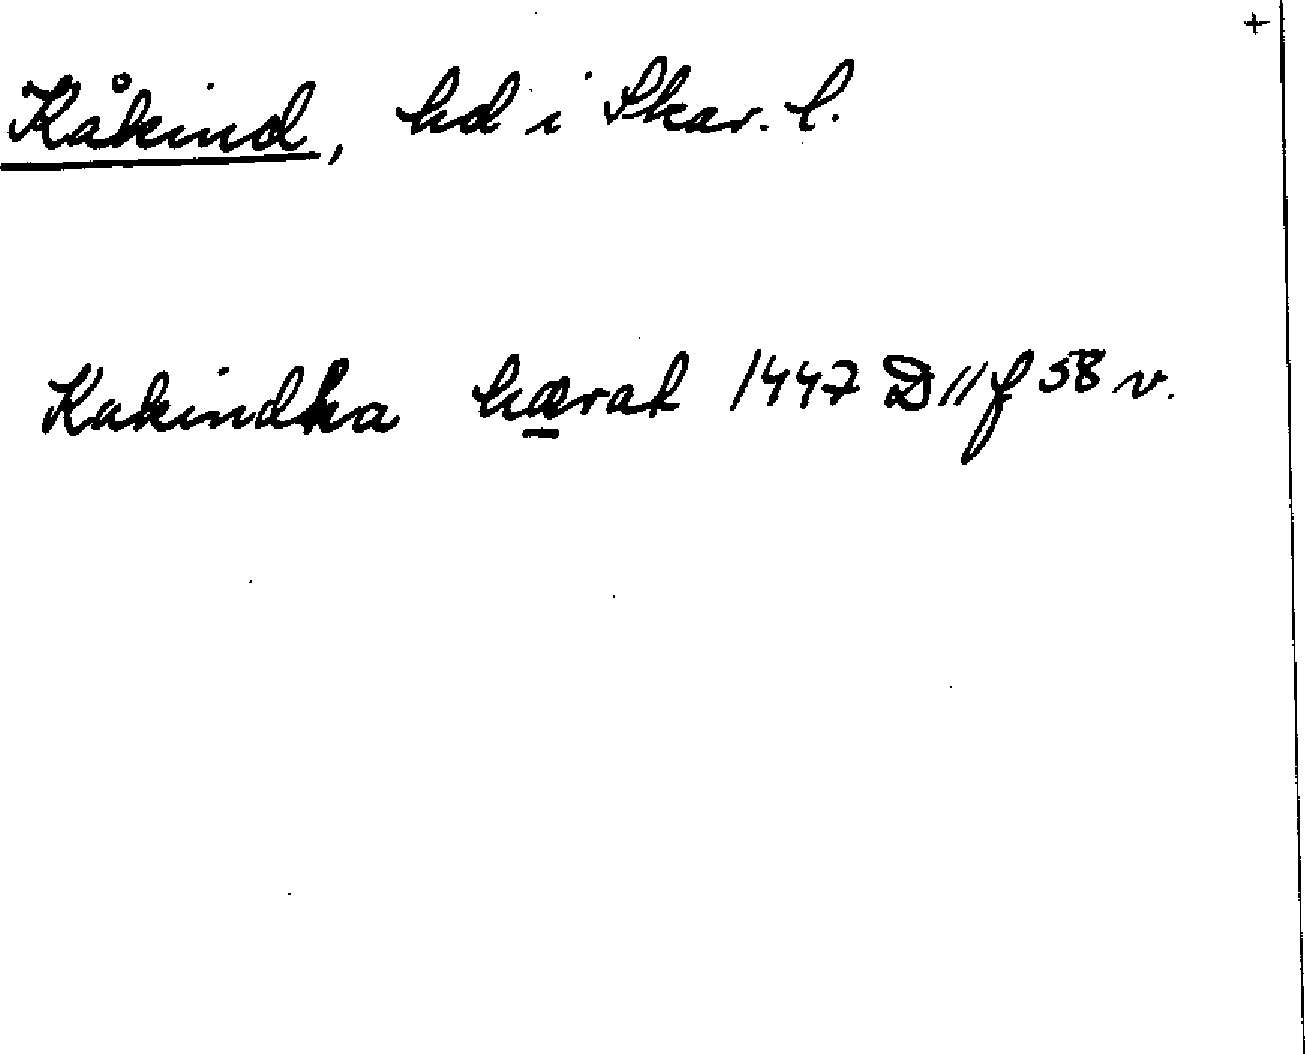 +
Kåkind, hd i Skar. l.
Kakindha hærat 1447 D 11 f 58 v.